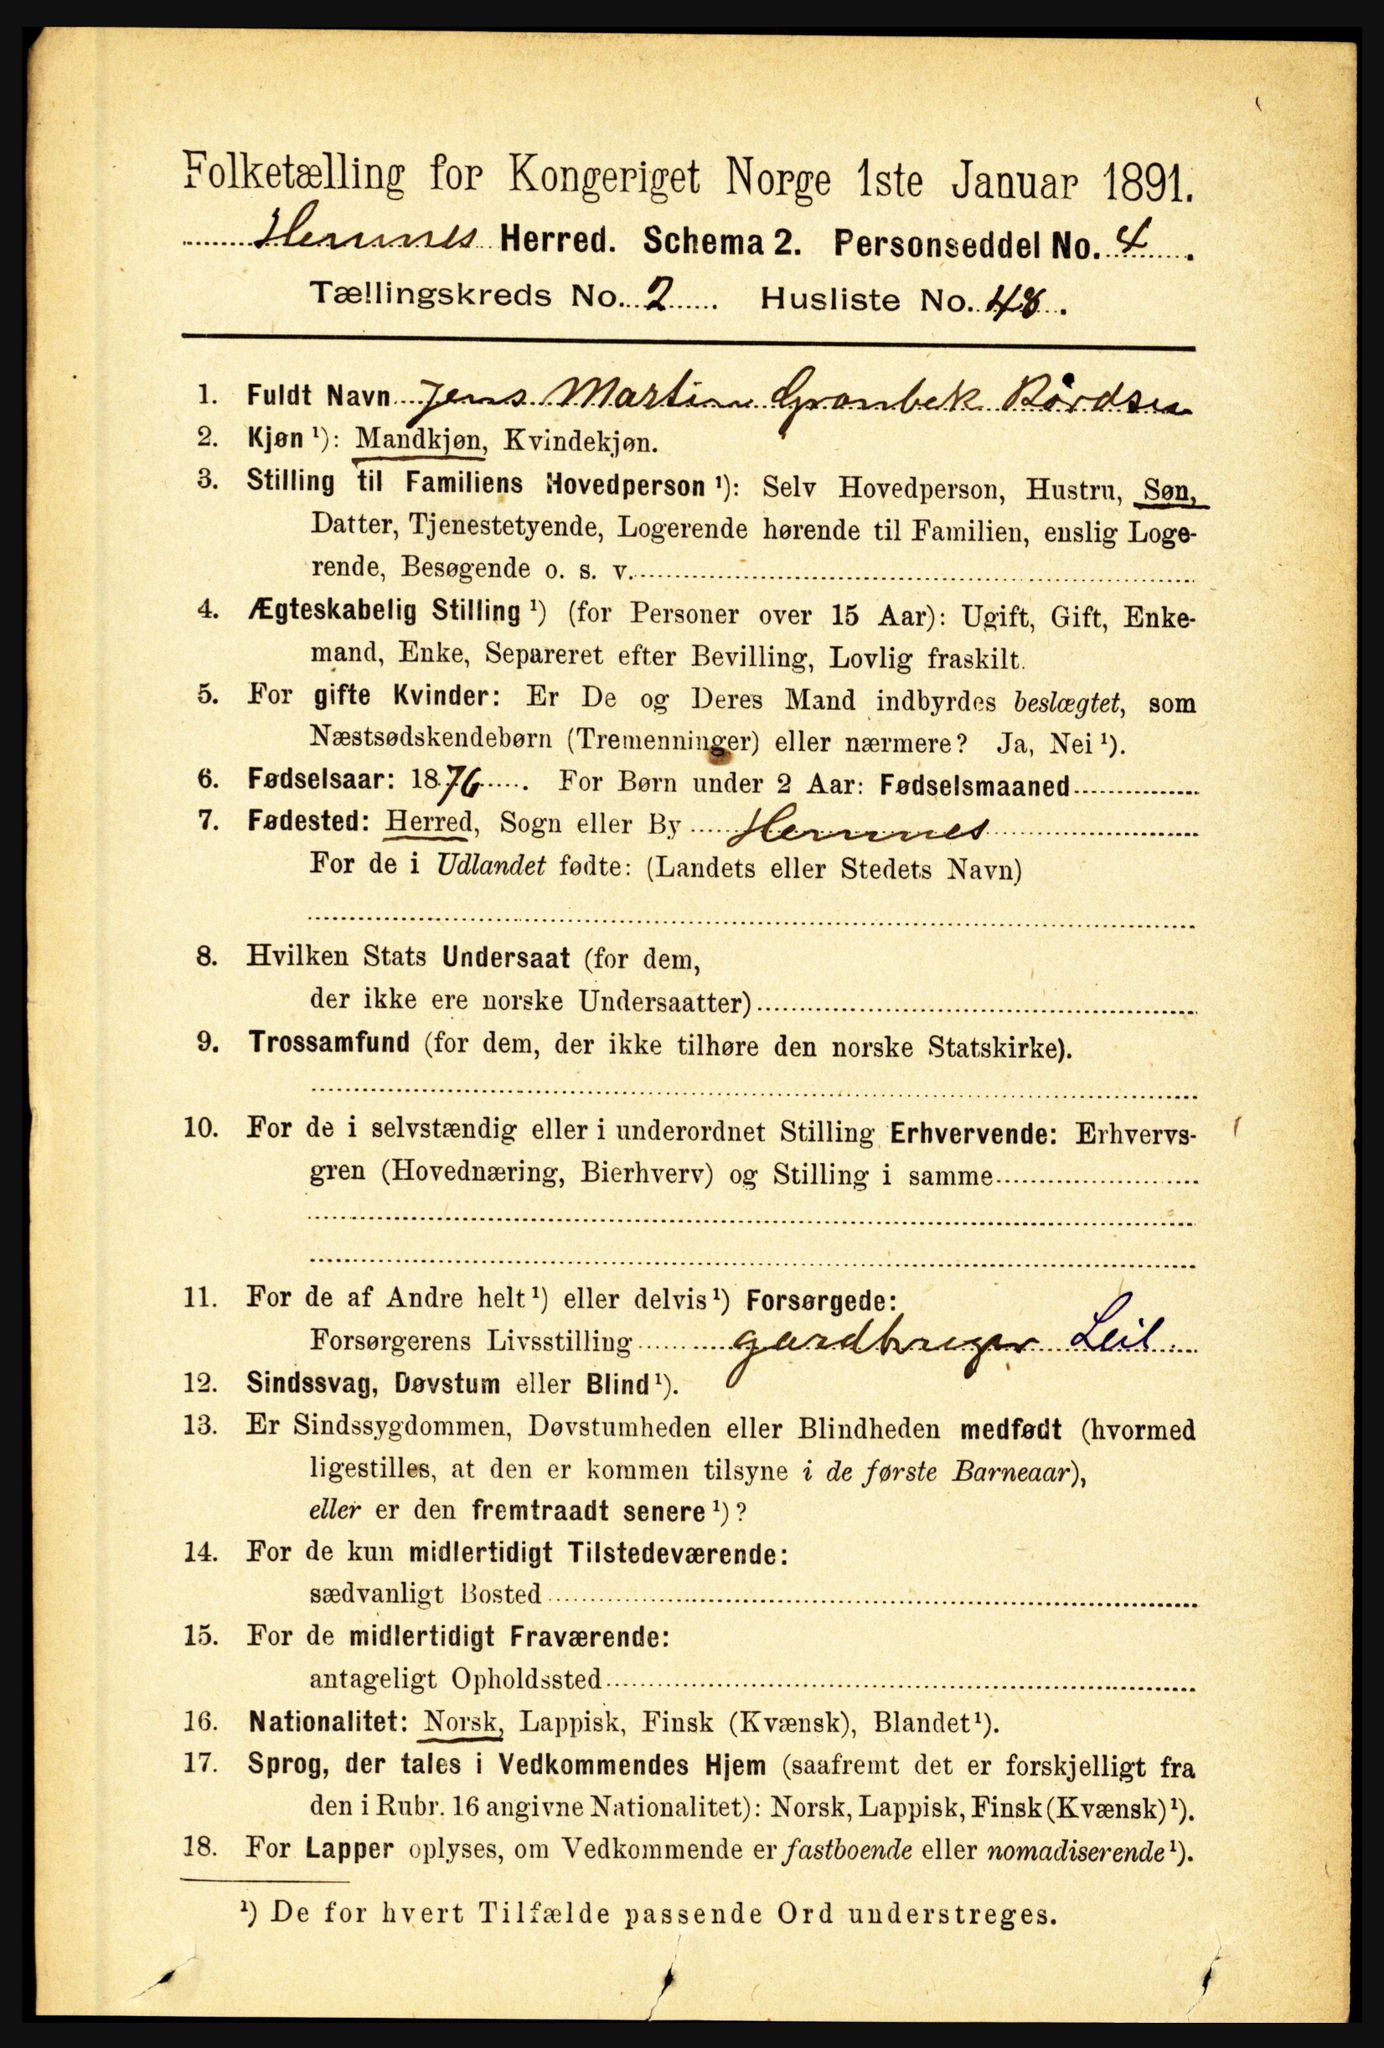 Folketælling for Kongeriget Norge 1ste Januar 1891.
Hemnes Herred. Schema 2. Personseddel No. 4.
Tællingskreds No. 2. Husliste No. 48.
1. Fuldt Navn Jens Martin Grønbek Bårdsen
2. Kjøn ¹): Mandkjøn, Kvindekjøn.
3. Stilling til Familiens Hovedperson ¹): Selv Hovedperson, Hustru, Søn,
Datter, Tjenestetyende, Logerende hørende til Familien, enslig Loge-
rende, Besøgende o. s. v.
4. Ægteskabelig Stilling ¹) (for Personer over 15 Aar): Ugift, Gift, Enke-
mand, Enke, Separeret efter Bevilling, Lovlig fraskilt.
5. For gifte Kvinder: Er De og Deres Mand indbyrdes beslægtet, som
Næstsødskendebørn (Tremenninger) eller nærmere? Ja, Nei ¹).
6. Fødselsaar: 1876. For Børn under 2 Aar: Fødselsmaaned
7. Fødested: Herred, Sogn eller By Hemnes
For de i Udlandet fødte: (Landets eller Stedets Navn)
8. Hvilken Stats Undersaat (for dem,
der ikke ere norske Undersaatter)
9. Trossamfund (for dem, der ikke tilhøre den norske Statskirke).
10. For de i selvstændig eller i underordnet Stilling Erhvervende: Erhvervs-
gren (Hovednæring, Bierhverv) og Stilling i samme
11. For de af Andre helt ¹) eller delvis ¹) Forsørgede:
Forsørgerens Livsstilling gardbruger Leil.
12. Sindssvag, Døvstum eller Blind ¹).
13. Er Sindssygdommen, Døvstumheden eller Blindheden medfødt (hvormed
ligestilles, at den er kommen tilsyne i de første Barneaar),
eller er den fremtraadt senere ¹)?
14. For de kun midlertidigt Tilstedeværende:
sædvanligt Bosted
15. For de midlertidigt Fraværende:
antageligt Opholdssted
16. Nationalitet: Norsk, Lappisk, Finsk (Kvænsk), Blandet ¹).
17. Sprog, der tales i Vedkommendes Hjem (saafremt det er forskjelligt fra
den i Rubr. 16 angivne Nationalitet): Norsk, Lappisk, Finsk (Kvænsk) ¹).
18. For Lapper oplyses, om Vedkommende er fastboende eller nomadiserende ¹).
¹) De for hvert Tilfælde passende Ord understreges.